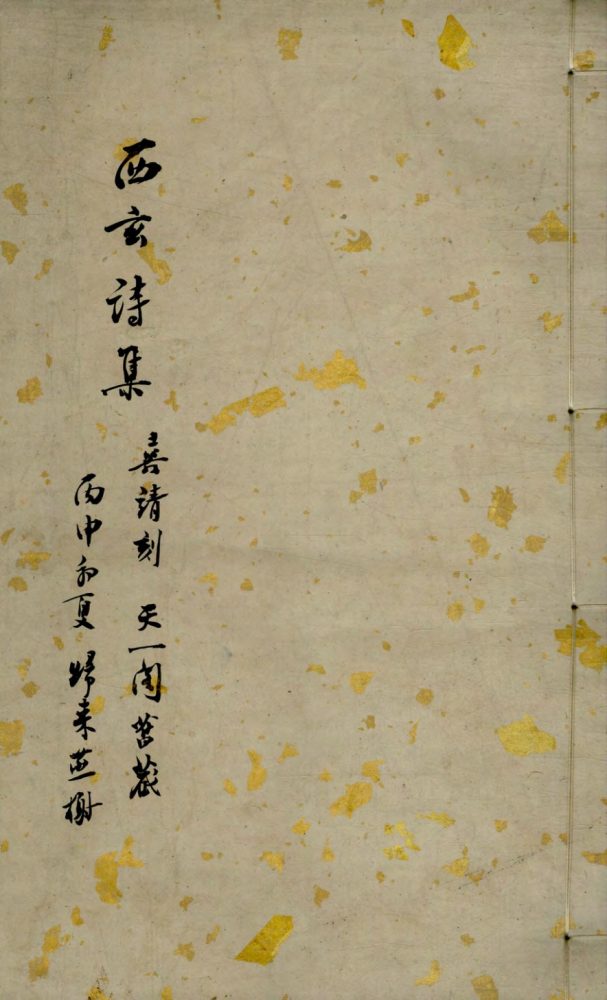 西玄詩集
嘉靖刻 天一閣舊藏
丙申初夏 歸來燕榭